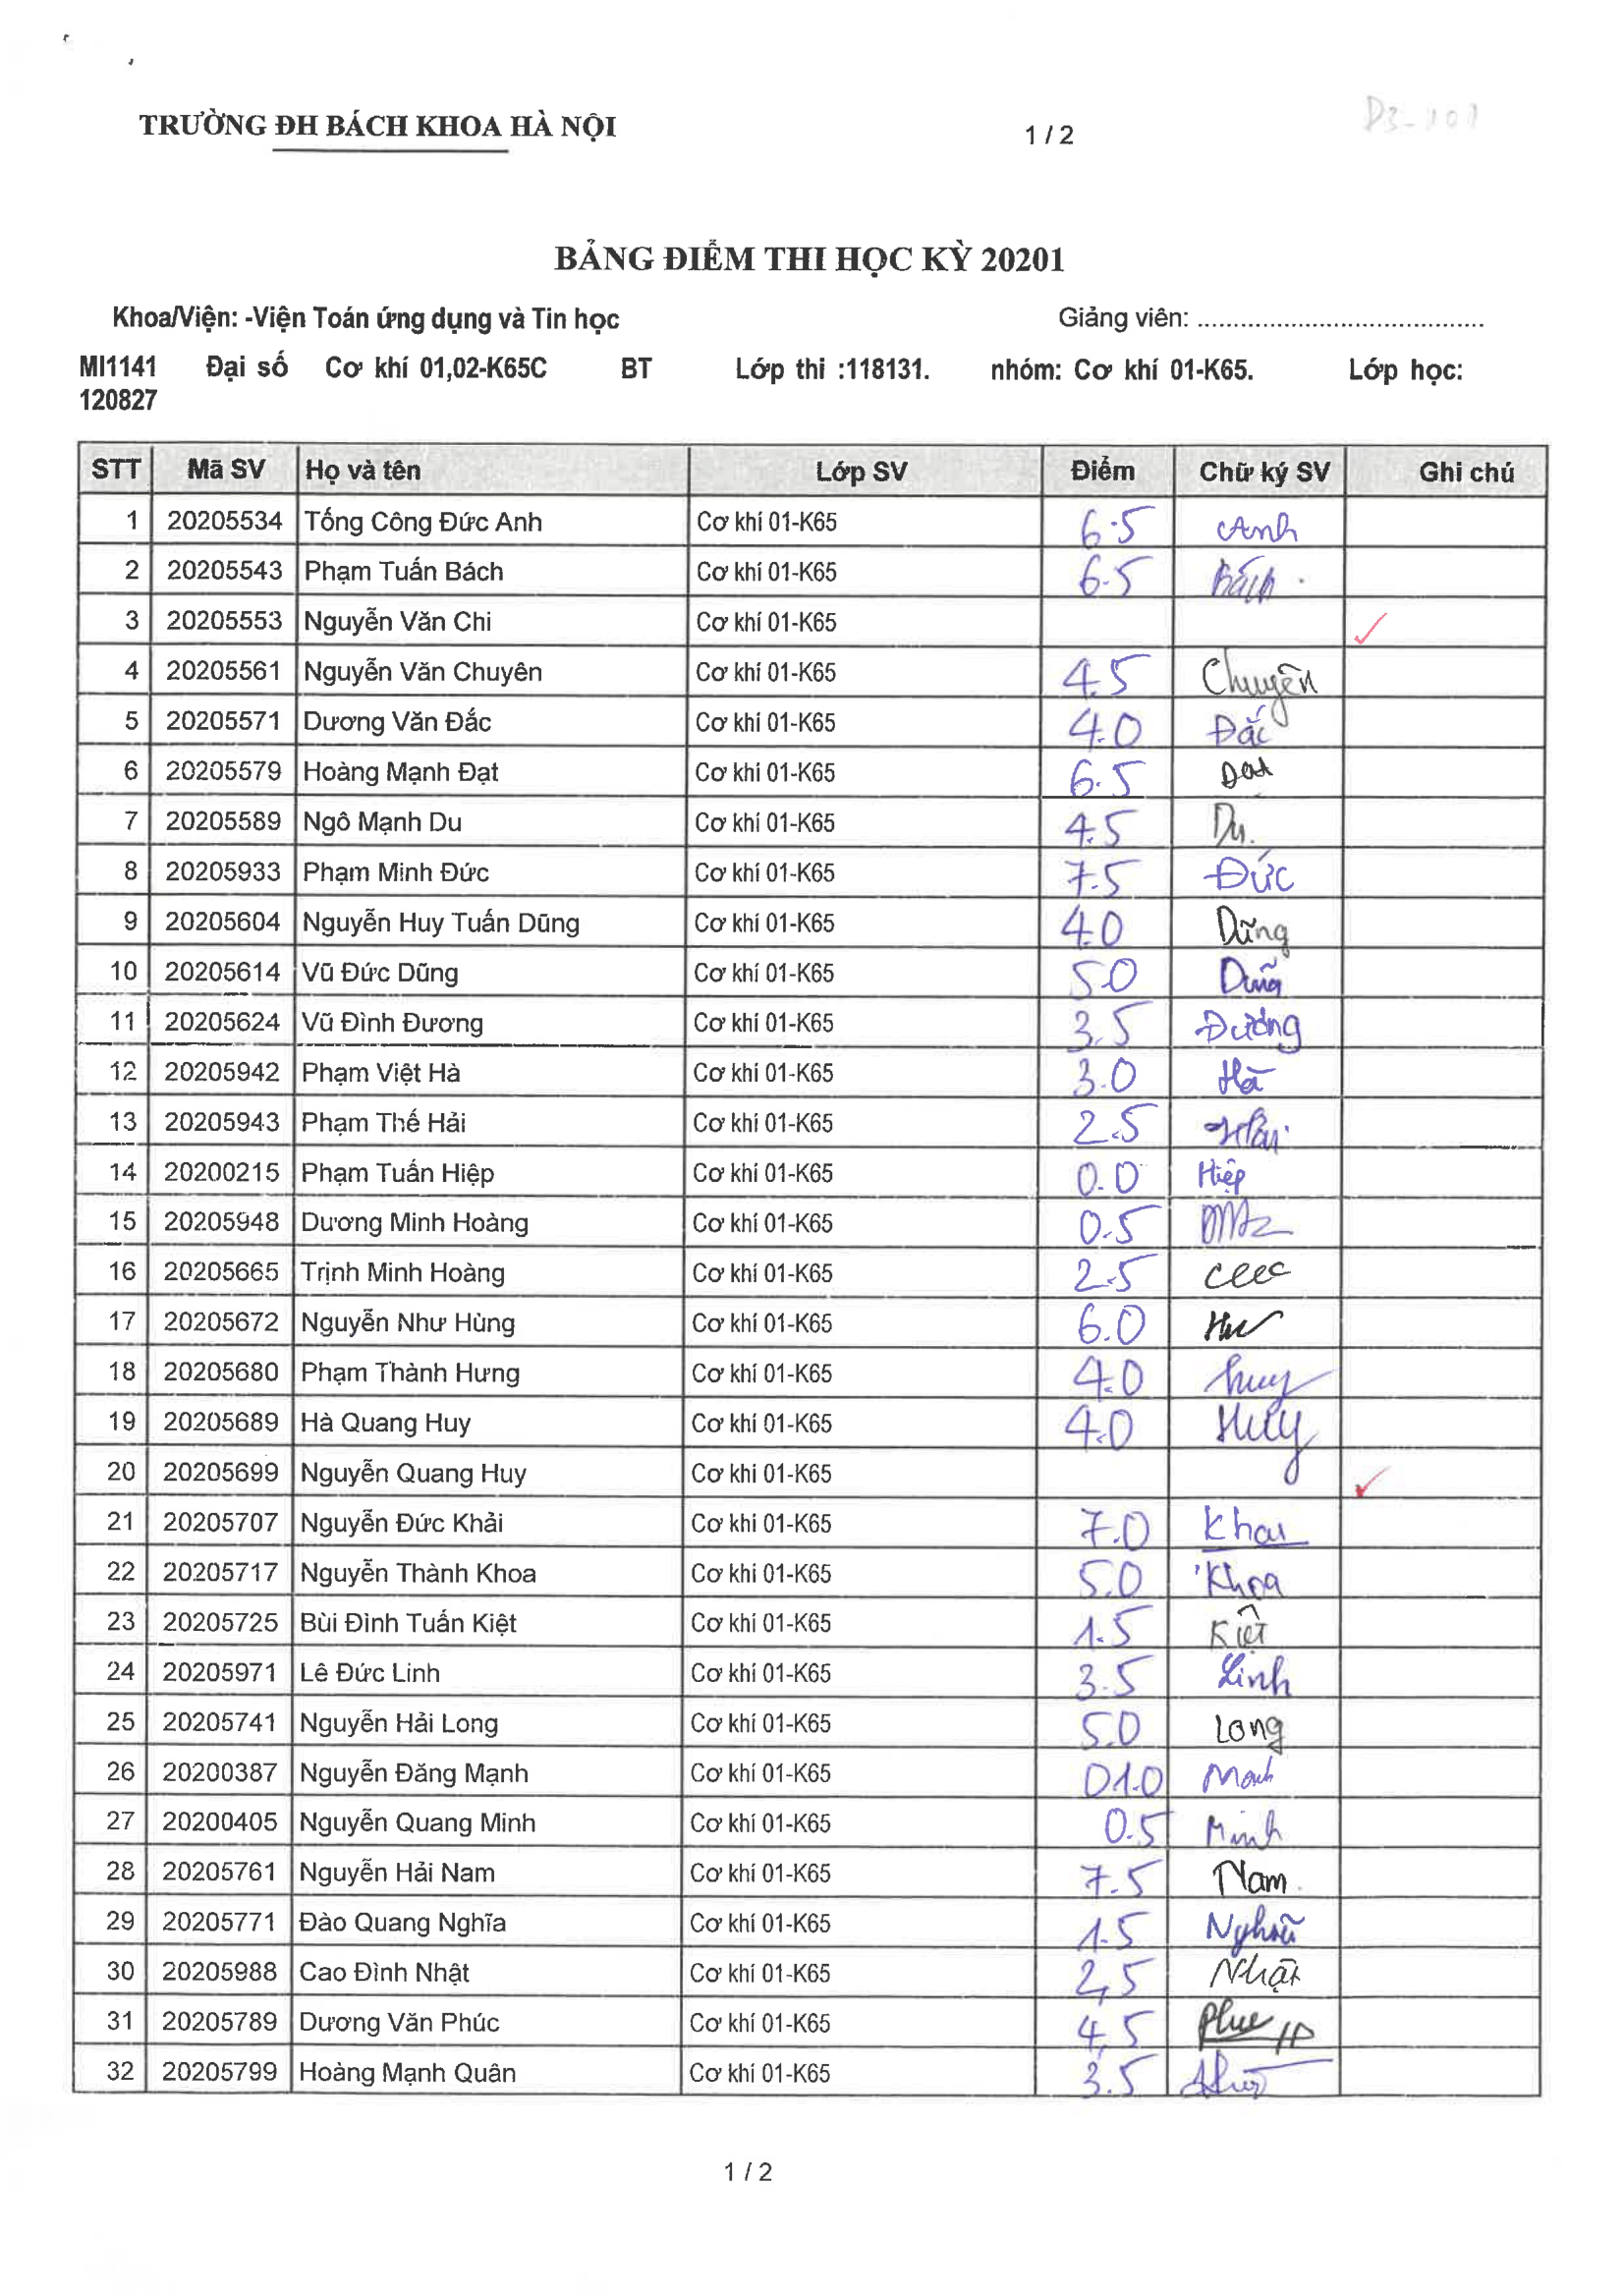 TRƯỜNG ĐH BÁCH KHOA HÀ NỘI 1 / 2 D3-101
BẢNG ĐIỂM THI HỌC KỲ 20201
Khoa/Viện: -Viện Toán ứng dụng và Tin học Giảng viên: ........................................
MI1141 Đại số Cơ khí 01,02-K65C BT Lớp thi :118131. nhóm: Cơ khí 01-K65. Lớp học:
120827
STT Mã SV Họ và tên Lớp SV Điểm Chữ ký SV Ghi chú
1 20205534 Tống Công Đức Anh Cơ khí 01-K65 6.5 Anh
2 20205543 Phạm Tuấn Bách Cơ khí 01-K65 6.5 Bách
3 20205553 Nguyễn Văn Chi Cơ khí 01-K65 ✓
4 20205561 Nguyễn Văn Chuyên Cơ khí 01-K65 4.5 Chuyên
5 20205571 Dương Văn Đắc Cơ khí 01-K65 4.0 Đắc
6 20205579 Hoàng Mạnh Đạt Cơ khí 01-K65 6.5 Đạt
7 20205589 Ngô Mạnh Du Cơ khí 01-K65 4.5 Du.
8 20205933 Phạm Minh Đức Cơ khí 01-K65 7.5 Đức
9 20205604 Nguyễn Huy Tuấn Dũng Cơ khí 01-K65 4.0 Dũng
10 20205614 Vũ Đức Dũng Cơ khí 01-K65 5.0 Dũng
11 20205624 Vũ Đình Đương Cơ khí 01-K65 3.5 Đương
12 20205942 Phạm Việt Hà Cơ khí 01-K65 3.0 Hà
13 20205943 Phạm Thế Hải Cơ khí 01-K65 2.5 Hải
14 20200215 Phạm Tuấn Hiệp Cơ khí 01-K65 0.0 Hiệp
15 20205948 Dương Minh Hoàng Cơ khí 01-K65 0.5
16 20205665 Trịnh Minh Hoàng Cơ khí 01-K65 2.5
17 20205672 Nguyễn Như Hùng Cơ khí 01-K65 6.0
18 20205680 Phạm Thành Hưng Cơ khí 01-K65 4.0
19 20205689 Hà Quang Huy Cơ khí 01-K65 4.0 Huy
20 20205699 Nguyễn Quang Huy Cơ khí 01-K65 ✓
21 20205707 Nguyễn Đức Khải Cơ khí 01-K65 7.0 Khải
22 20205717 Nguyễn Thành Khoa Cơ khí 01-K65 5.0 Khoa
23 20205725 Bùi Đình Tuấn Kiệt Cơ khí 01-K65 1.5 Kiệt
24 20205971 Lê Đức Linh Cơ khí 01-K65 3.5 Linh
25 20205741 Nguyễn Hải Long Cơ khí 01-K65 5.0 Long
26 20200387 Nguyễn Đăng Mạnh Cơ khí 01-K65 01.0 Mạnh
27 20200405 Nguyễn Quang Minh Cơ khí 01-K65 0.5 Minh
28 20205761 Nguyễn Hải Nam Cơ khí 01-K65 7.5 Nam.
29 20205771 Đào Quang Nghĩa Cơ khí 01-K65 1.5 Nghĩa
30 20205988 Cao Đình Nhật Cơ khí 01-K65 2,5 Nhật
31 20205789 Dương Văn Phúc Cơ khí 01-K65 4,5 Phúc
32 20205799 Hoàng Mạnh Quân Cơ khí 01-K65 3.5
1 / 2